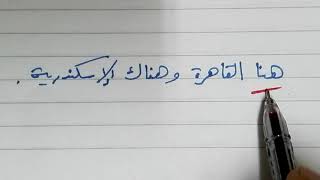 هنا القاهرة وهناك الإسكندرية .